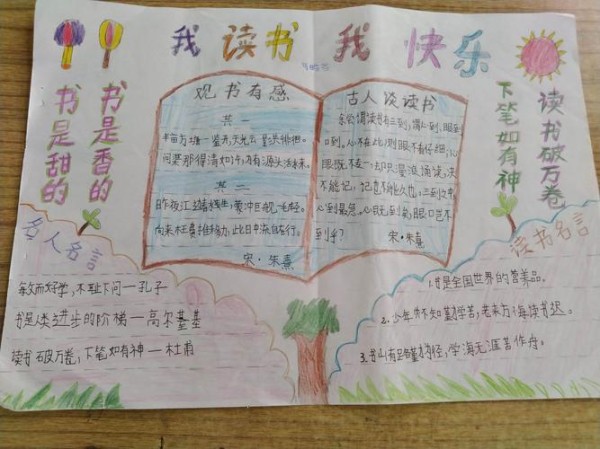 我读书我快乐
书是香的
书是甜的
读书破万卷
下笔如有神
观书有感
其一
半亩方塘一鉴开,天光云影共徘徊。
问渠那得清如许,为有源头活水来。
其二
昨夜江边春水生,蒙冲巨舰一毛轻。
向来枉费推移力,此日中流自在行。
宋·朱熹
古人谈读书
余尝谓读书有三到,谓心到,眼到
口到。心不在此,则眼不看仔细,心
眼既不专一,却只漫浪诵读,决
不能记,记也不能久也,三到之中,
心到最急。心既到矣,眼口岂不
到乎?
宋·朱熹
名人名言
敏而好学,不耻下问一孔子
书是人类进步的阶梯一高尔基
读书破万卷,下笔如有神一杜甫
读书名言
1.书是全国世界的营养品.
2.少年不知勤学苦,老来方悔读书迟。
3.书山有路勤为径,学海无涯苦作舟。